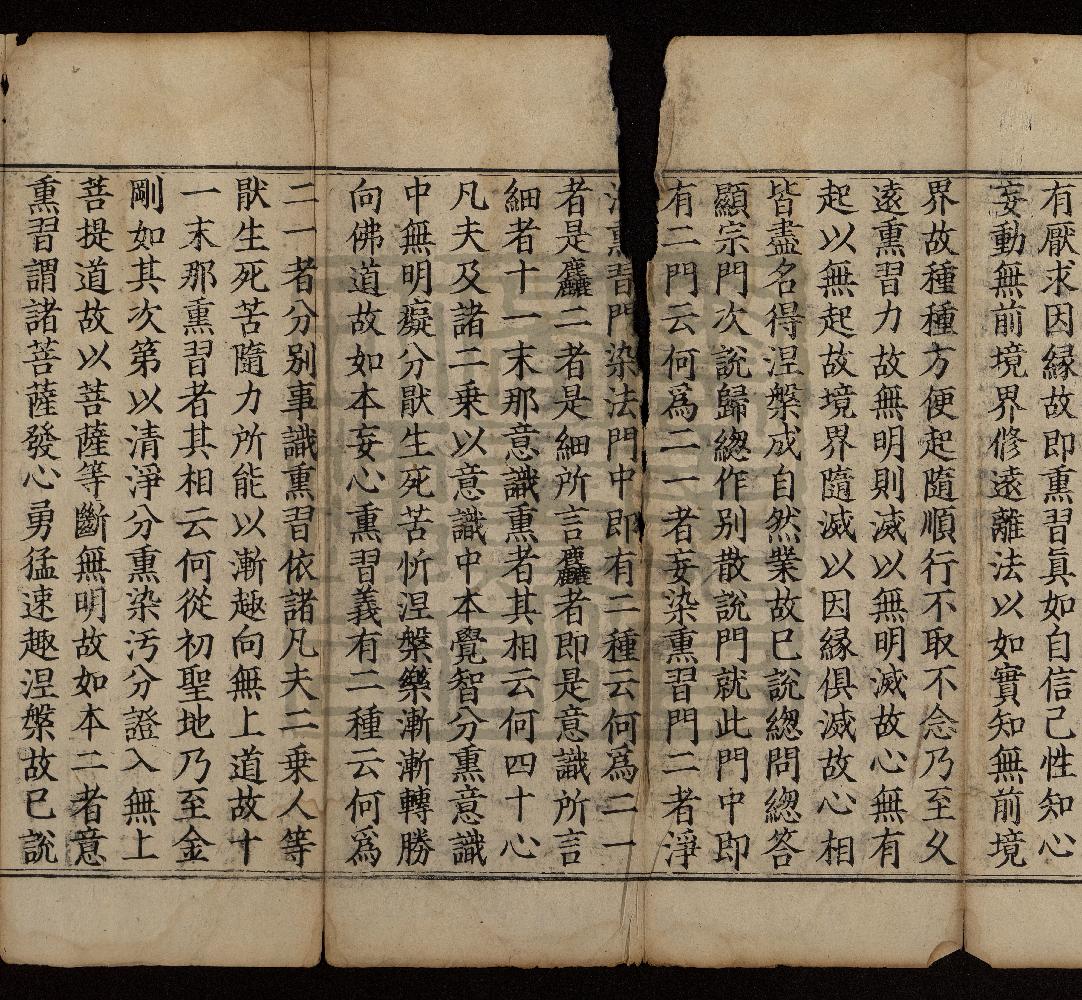 有厭求因緣故即熏習眞如自信己性知心
妄動無前境界修遠離法以如實知無前境
界故種種方便起隨順行不取不念乃至久
遠熏習力故無明則滅以無明滅故心無有
起以無起故境界隨滅以因緣俱滅故心相
皆盡名得涅槃成自然業故已說總問總答
顯宗門次說歸總作別散說門就此門中即
有二門云何爲二一者妄染熏習門二者淨
法熏習門染法門中即有二種云何爲二一
者是麤二者是細所言麤者即是意識所言
細者十一末那意識熏者其相云何四十心
凡夫及諸二乗以意識中本覺智分熏意識
中無明癡分猒生死苦忻涅槃樂漸漸轉勝
向佛道故如本妄心熏習義有二種云何爲
二一者分別事識熏習依諸凡夫二乗人等
猒生死苦隨力所能以漸趣向無上道故十
一末那熏習者其相云何從初聖地乃至金
剛如其次第以清淨分熏染汚分證入無上
菩提道故以菩薩等斷無明故如本二者意
熏習謂諸菩薩發心勇猛速趣涅槃故已說